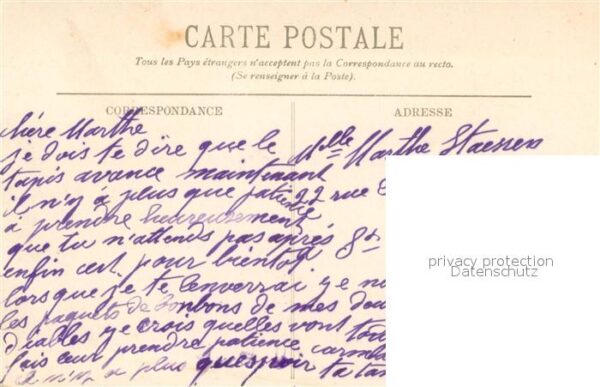 CARTE POSTALE
Tous les Pays étrangers n'acceptent pas la Correspondance au recto.
(Se renseigner à la Poste).
CORRESPONDANCE
ADRESSE
Chère Marthe
je dois te dire que le
tapis avance maintenant
il n'y a plus que patience
à prendre heureusement
que tu n'attends pas après
enfin cest pour bientot
lorsque je te lenverrai je
les paquets de bonbons de mes
diables je crois quelles vont
fais leur prendre patience
a plus quespoir ta
Mlle Marthe Staessen
22 rue
privacy protection
Datenschutz